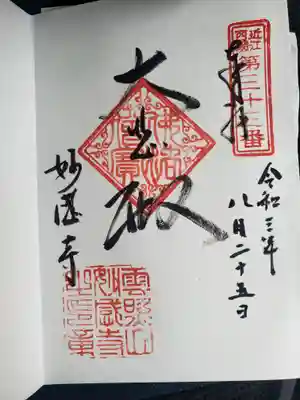 近江西国第三十三番
奉拝
令和三年
八月二十五日
大悲殿
佛法僧寶
妙感寺
雲照山
妙感寺
之印章